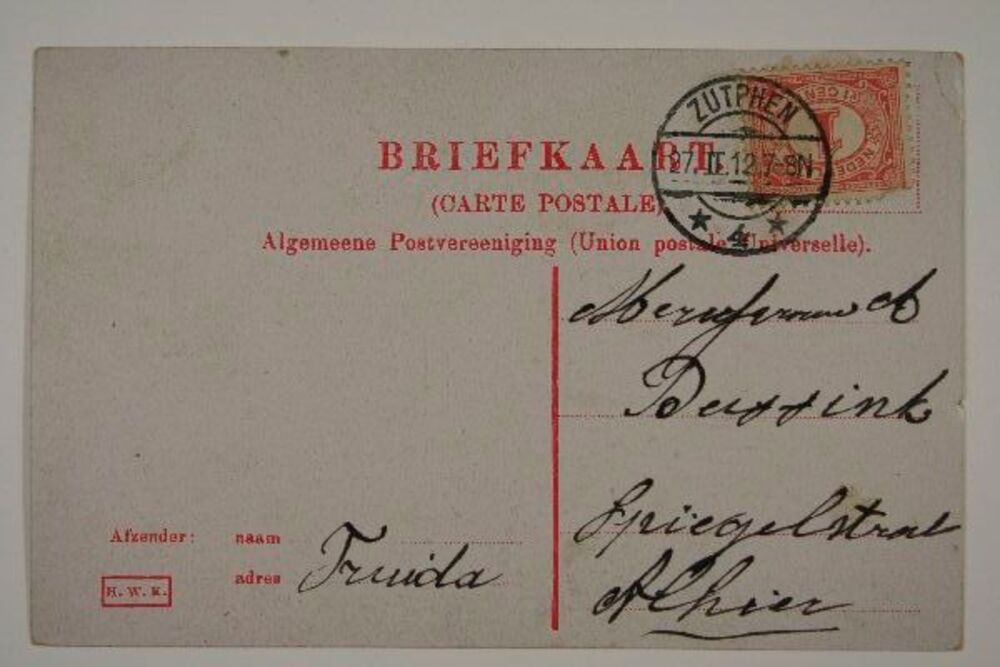 BRIEFKAART
(CARTE POSTALE)
Algemeene Postvereeniging (Union postale Universelle).
ZUTPHEN
27.II.12.7-8N
4
1 CENT
1
NEDE
Mevrouw A
Bussink
Spiegelstraat
Alhier
Afzender: naam
adres
Truida
H. W. K.